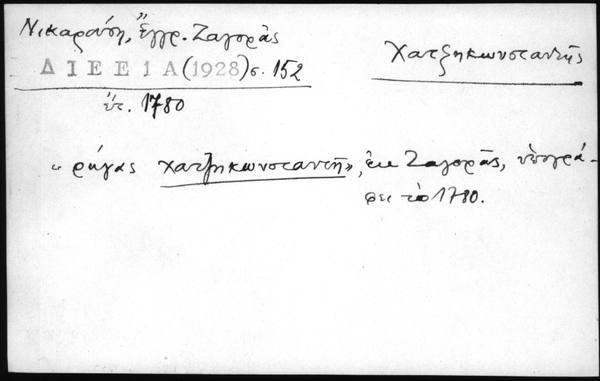 Νικαρούση, Ἔγγρ. Ζαγορᾶς
Χατζηκωνσταντῆς
Δ Ι Ε Ε 1 Α (1928) σ. 152
ἔτ. 1780
"ρήγας χατζηκωνσταντῆ", ἐκ Ζαγορᾶς, ὑπογρά-
φει τὸ 1780.